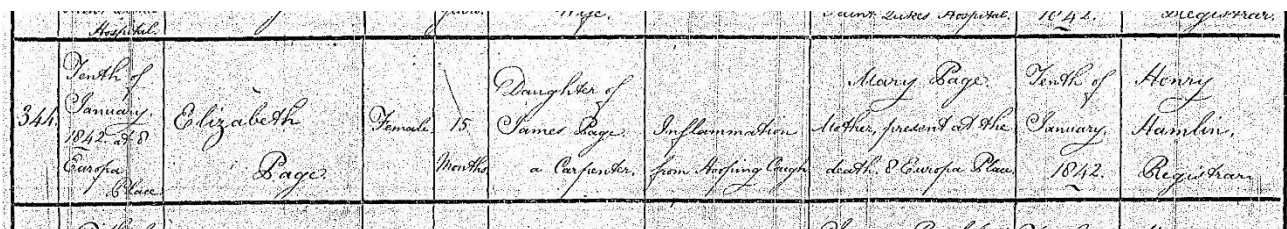 Hospital.
Wife.
Saint Lukes Hospital.
1842.
Registrar.
344.
Tenth of
January
1842 at 8
Europa
Place
Elizabeth
Page
Female
15
Months
Daughter of
James Page
a Carpenter.
Inflammation
from Hooping Cough
Mary Page.
Mother, present at the
death. 8 Europa Place.
Tenth of
January,
1842.
Henry
Hamlin,
Registrar